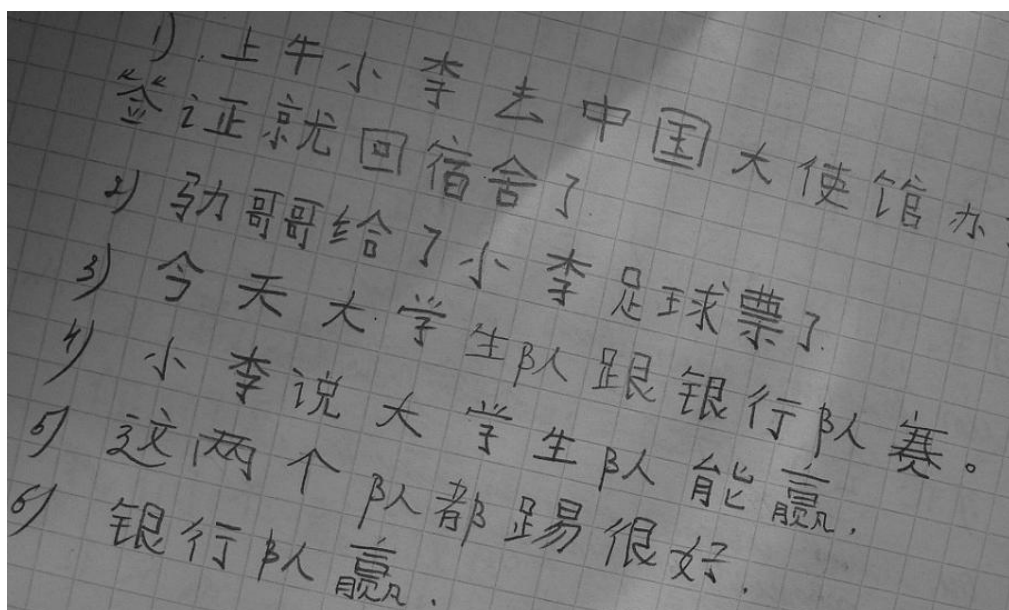 1). 上牛小李去中国大使馆办
签证就回宿舍了
2) 哥哥给了小李足球票了.
3) 今天大学生队跟银行队赛。
4) 小李说大学生队能赢.
5) 这两个队都踢很好.
6) 银行队赢.